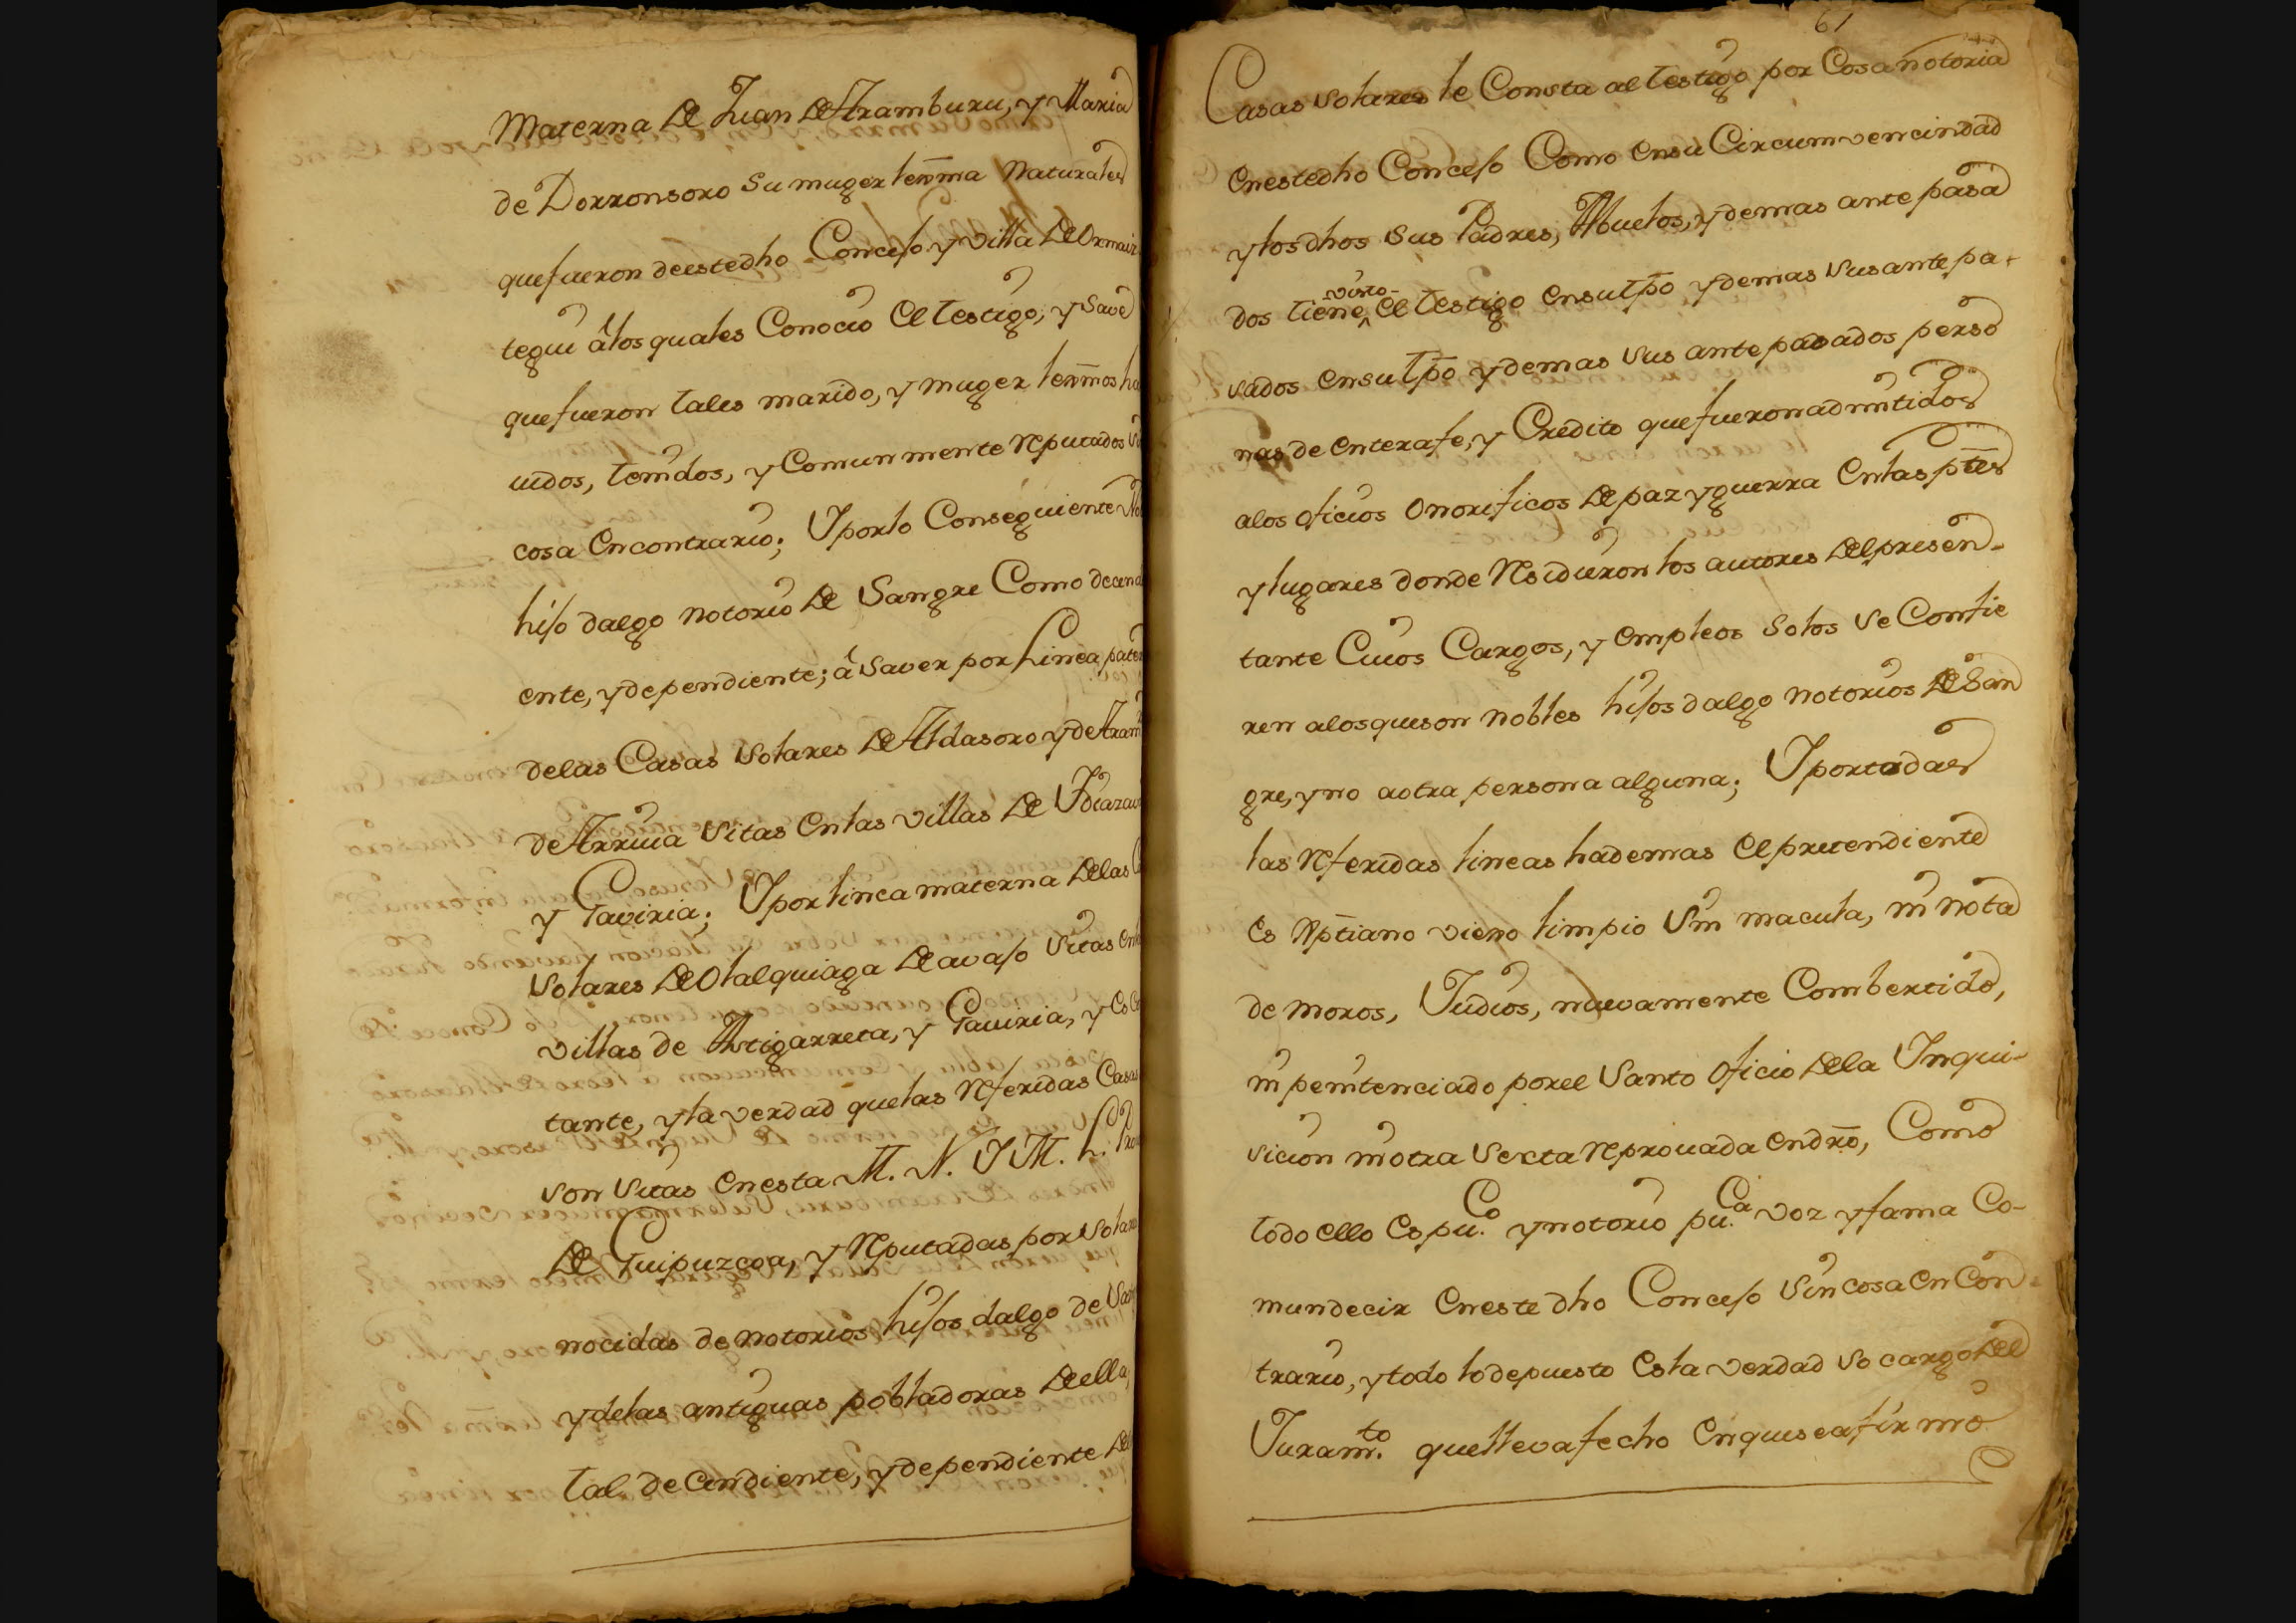 Materna de Juan de Aramburu, y Maria
de Dorronsoro su muger lexma naturales
que fueron de estedho Concejo y villa de Ormaiz
tegui â los quales Conocio el testigo, y save
que fueron tales marido, y muger lexmos ha
uidos, tenidos, y Comunmente Reputados
cosa encontrario; Y porlo Conseguiente
hijo dalgo notorio de Sangre Como decend
ente, y dependiente; â saver por Linea pater
delas Casas Solares de Aldasoro y de Aram
de Arriua sitas enlas villas de Ydiazau
y Gaviria; Y por linea materna delas
Solares de Olalquiaga de avajo sitas en
villas de Astigarreta, y Gauiria, y es
tante, y la verdad quelas Referidas Casas
son sitas enesta M. N. Y M. L.
de Guipuzcoa, y Reputadas por Solar
nocidas de notorios hijos dalgo de
y delas antiguas pobladoras de ella,
tal decendiente, y dependiente de
61
Casas solares le Consta al testigo por Cosa notoria
enestedho Concejo Como ensu Circumvencindad
y los dhos sus Padres, Abuelos, y demas ante pasa
dos tiene visto el testigo ensu tpo y demas sus antepa-
sados ensu tpo y demas sus ante pasados perso
nas de entera fe, y Credito que fueron admitidos
alos oficios onorificos de paz y guerra enlas ptes
y lugares donde Residieron los autores del presen-
tante Cuios Cargos, y empleos solos se Confie
ren alos queson nobles hijos dalgo notorios de San
gre, y no aotra persona alguna; Y portodas
las Referidas lineas hademas el pretendiente
es Xptiano viejo limpio sin macula, ni nota
de moros, Judios, nuevamente Combertido,
ni penitenciado porel Santo oficio dela Inqui-
sicion ni otra secta Reprouada endro, Como
todo ello es pu.co y notorio pu.ca voz y fama Co-
mundecir eneste dho Concejo sin cosa en Con-
trario, y todo lo depuesto es la verdad so cargo del
Juram.to que lleva fecho en que se afirmo